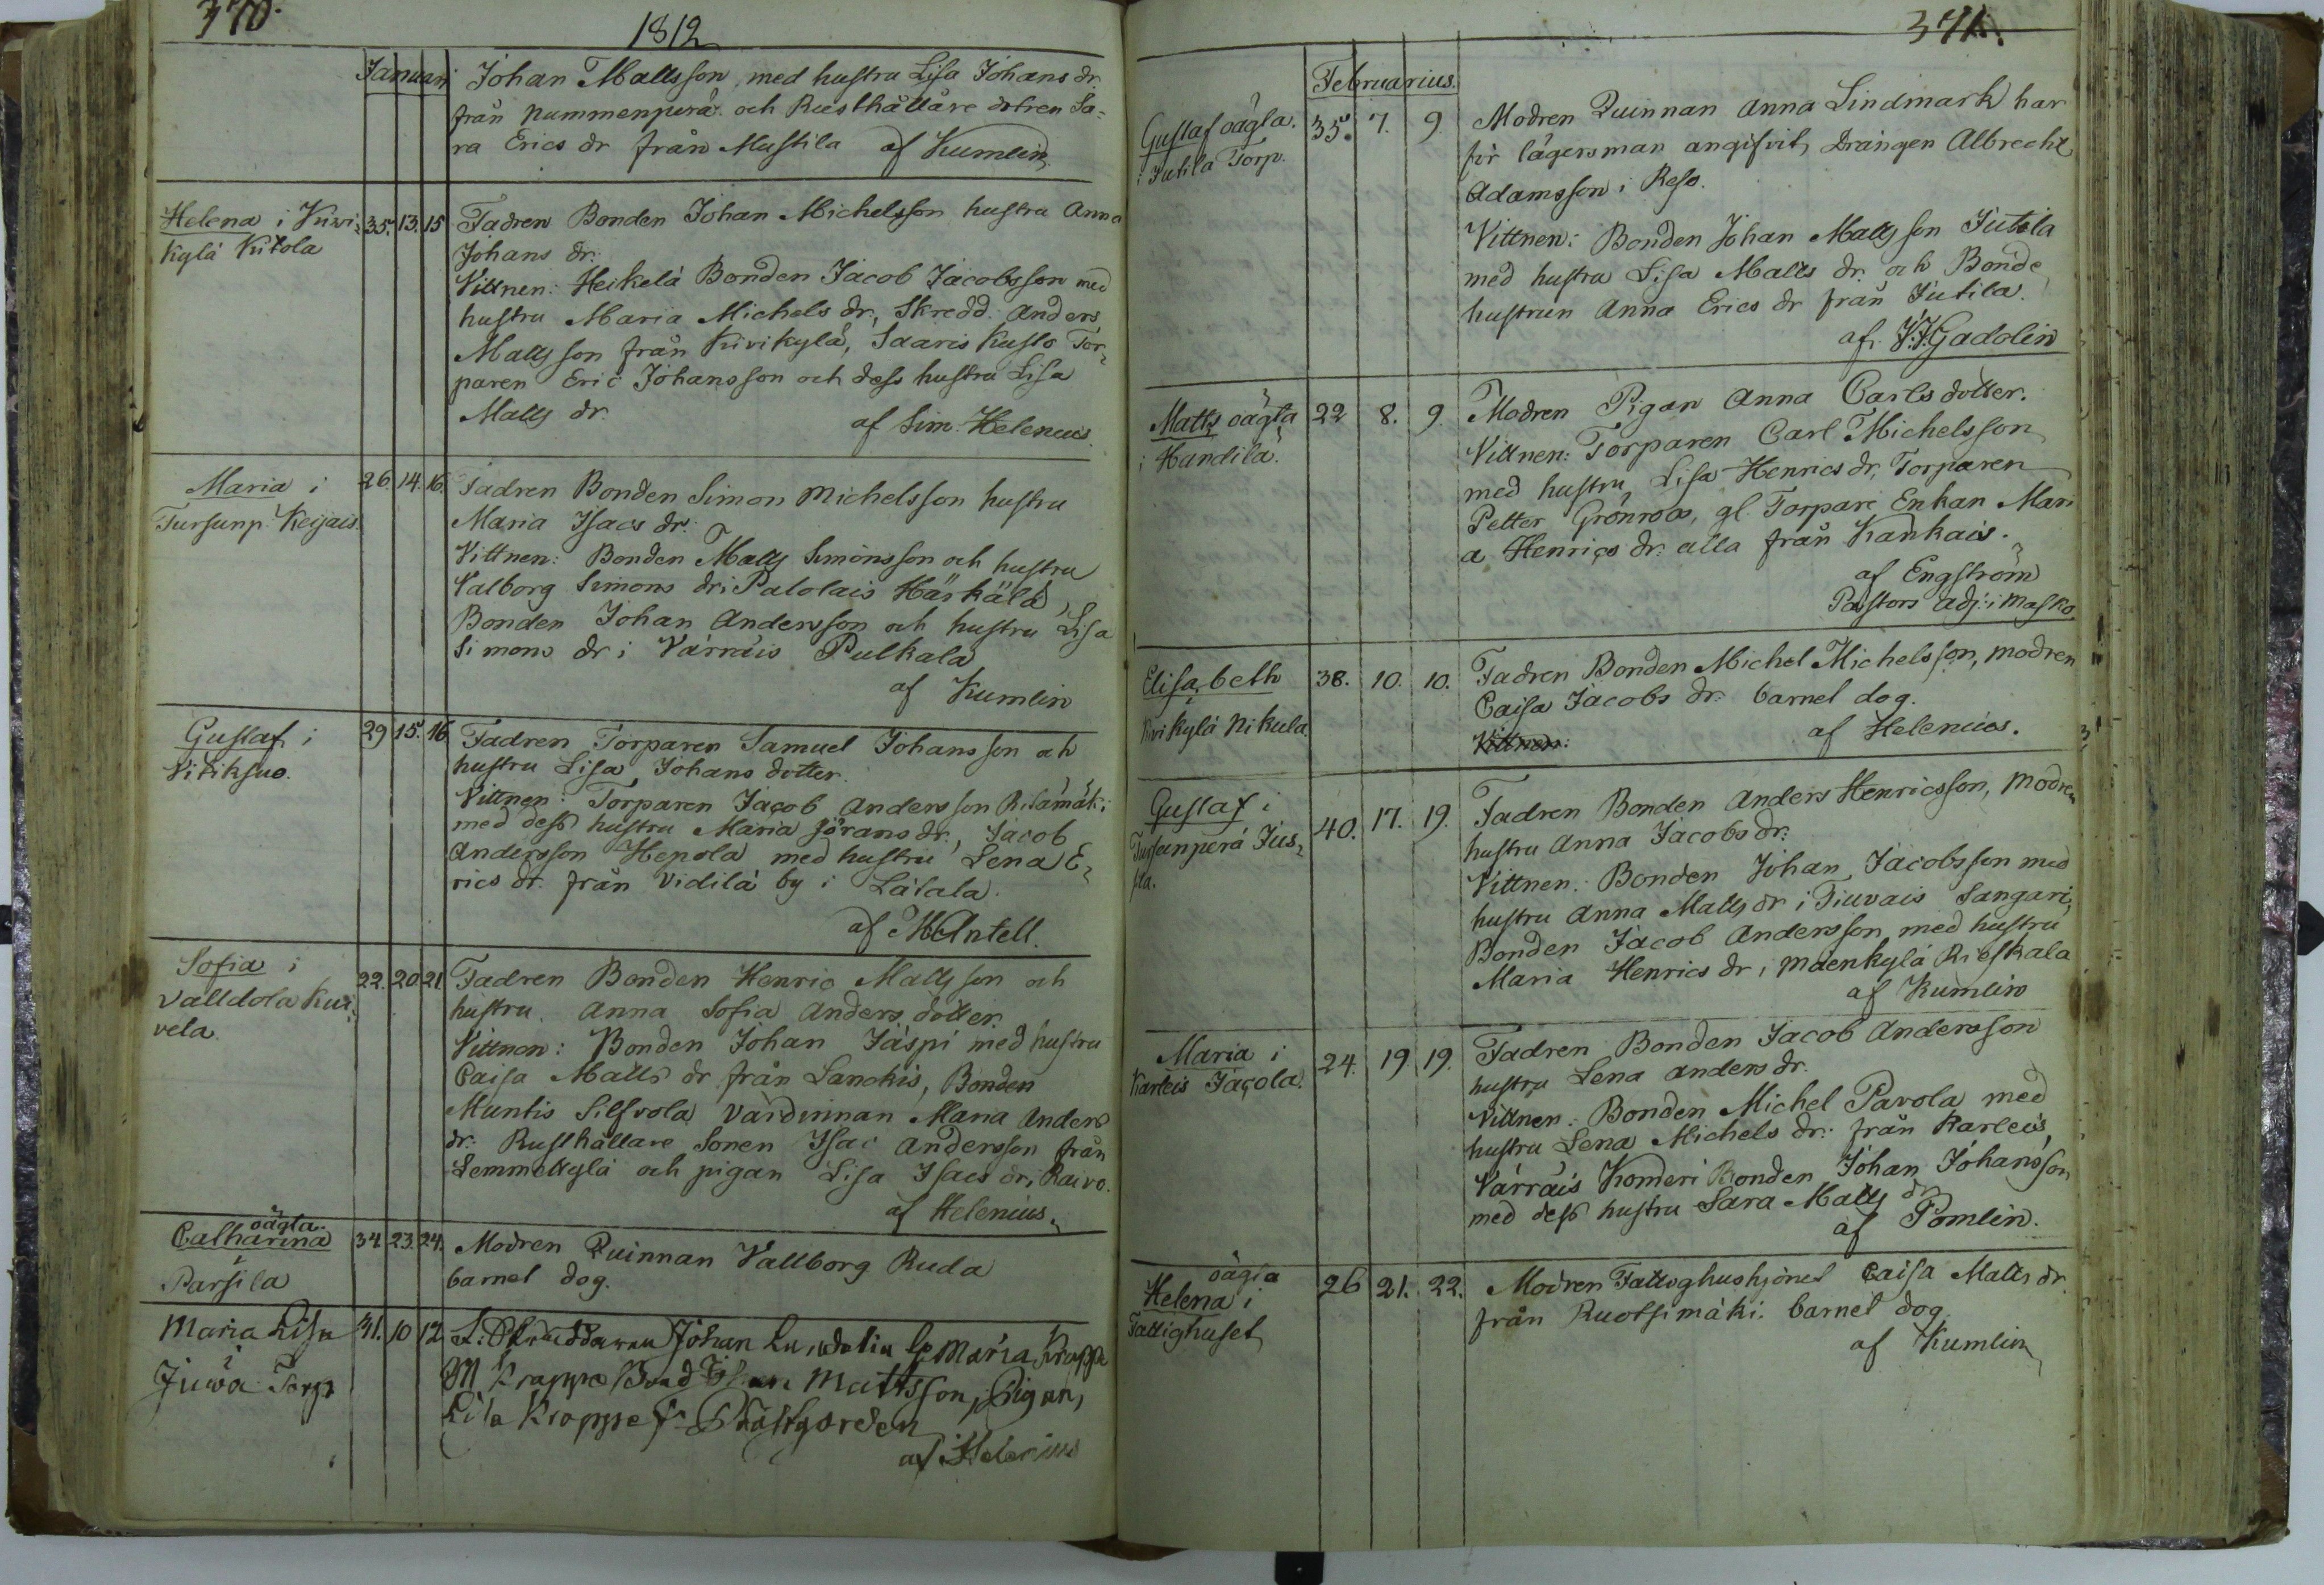 370.
1812
Januari
Johan Mattsson, med hustru Lisa Johans dr.
från Nummenperä och Rusthållare dotren Sa-
ra Erics dr från Mustila af Kumlin
Helena i Kiwi- 35. 13. 15
kylä Kitola
Fadren Bonden Johan Michelsson hustru Anna
Johans dr:
Vittnen: Heikelä Bonden Jacob Jacobsson med
hustru Maria Michels dr, Skredd. Anders
Matts son från Kivikylä, Saaris Kusto Tor-
paren Eric Johansson och dess hustru Lisa
Matts dr.
af Sim. Helenius.
Maria i 26. 14. 16.
Tursunp. Keijais.
Fadren Bonden Simon Michelsson hustru
Maria Isacs dr.
Vittnen: Bonden Matts Simonsson och hustru
Valborg Simons dr i Palolais Härkälä,
Bonden Johan Andersson och hustru Lisa
Simons dr i Värnäis Pulkala
af Kumlin
Gustaf i 29 15. 16
Vitiksuo.
Fadren Torparen Samuel Johansson och
hustru Lisa Johans dotter.
Vittnen: Torparen Jacob Andersson
med dess hustru Maria Jörans dr, Jacob
Andersson Hepola med hustru Lena E-
rics dr. från Vidilä by i Lätala.
af Antell.
Sofia i 22. 20. 21
Valldola Kui-
vela.
Fadren Bonden Henric Mattsson och
hustru Anna Sofia Anders dotter.
Vittnen: Bonden Johan Jäspi med hustru
Caisa Matts dr från Lanckis, Bonden
Muntis Silfvola Värdinnan Maria Anders
dr: Rusthållare Sonen Isac Andersson från
Lemmettylä och pigan Lisa Isacs dr i Raivo.
af Helenius.
oägta
Catharina 34 23. 24.
i
Parsila
Modren Quinnan Vallborg Ruda
barnet dog.
Maria Lisa 31. 10 12
i
Juwa Torp
Johan Maria Krappe
Krappe Mattsson, Pigan,
Lisa Krappe
af Helenius
371.
Februarius.
Gustaf oägta. 35. 7. 9.
i Jutila Torp.
Modren Quinnan Anna Lindmark har
för lägersman angifvit, Drängen Albrecht
Adamsson i Reso.
Vittnen: Bonden Johan Matts son Jutila
med hustru Lisa Matts dr. och Bonde
hustrun Anna Erics dr från Jutila.
af J: J: Gadolin
Matts oägta 22 8. 9.
i Handila.
Modren Pigan Anna Carls dotter.
Vittnen: Torparen Carl Michelsson
med hustru Lisa Henrics dr, Torparen
Petter Grönroos, gl. Torpare Enkan Mari
a Henrics dr: alla från Kankais.
af Engström
Pastors adj: i Masko.
Elisabeth 38. 10. 10.
i
Kivikylä Nikula.
Fadren Bonden Michel Michelsson, modren
Caisa Jacobs dr. barnet dog.
af Helenius.
Vittnen:
Gustaf i 40. 17. 19.
Tursunperä Jus-
sla.
Fadren Bonden Anders Henricsson, Modren
hustru Anna Jacobs dr:
Vittnen: Bonden Johan Jacobsson med
hustru Anna Matts dr i Tiuvais Sangari,
Bonden Jacob Andersson med hustru
Maria Henrics dr i Mäenkylä Rieskala
af Kumlin
Maria i 24. 19 19.
Karleis Jacola.
Fadren Bonden Jacob Andersson
hustru Lena Anders dr.
Vittnen: Bonden Michel Pavola med
hustru Lena Michels dr: från Karleis,
Värräis Konderi Bonden Johan Johansson
med dess hustru Sara Matts dr
af Pomlin.
oägta
Helena i 26 21. 22.
Fattighuset
Modren Fattighushjonet Caisa Matts dr.
från Ruotsimäki. barnet dog.
af Kumlin